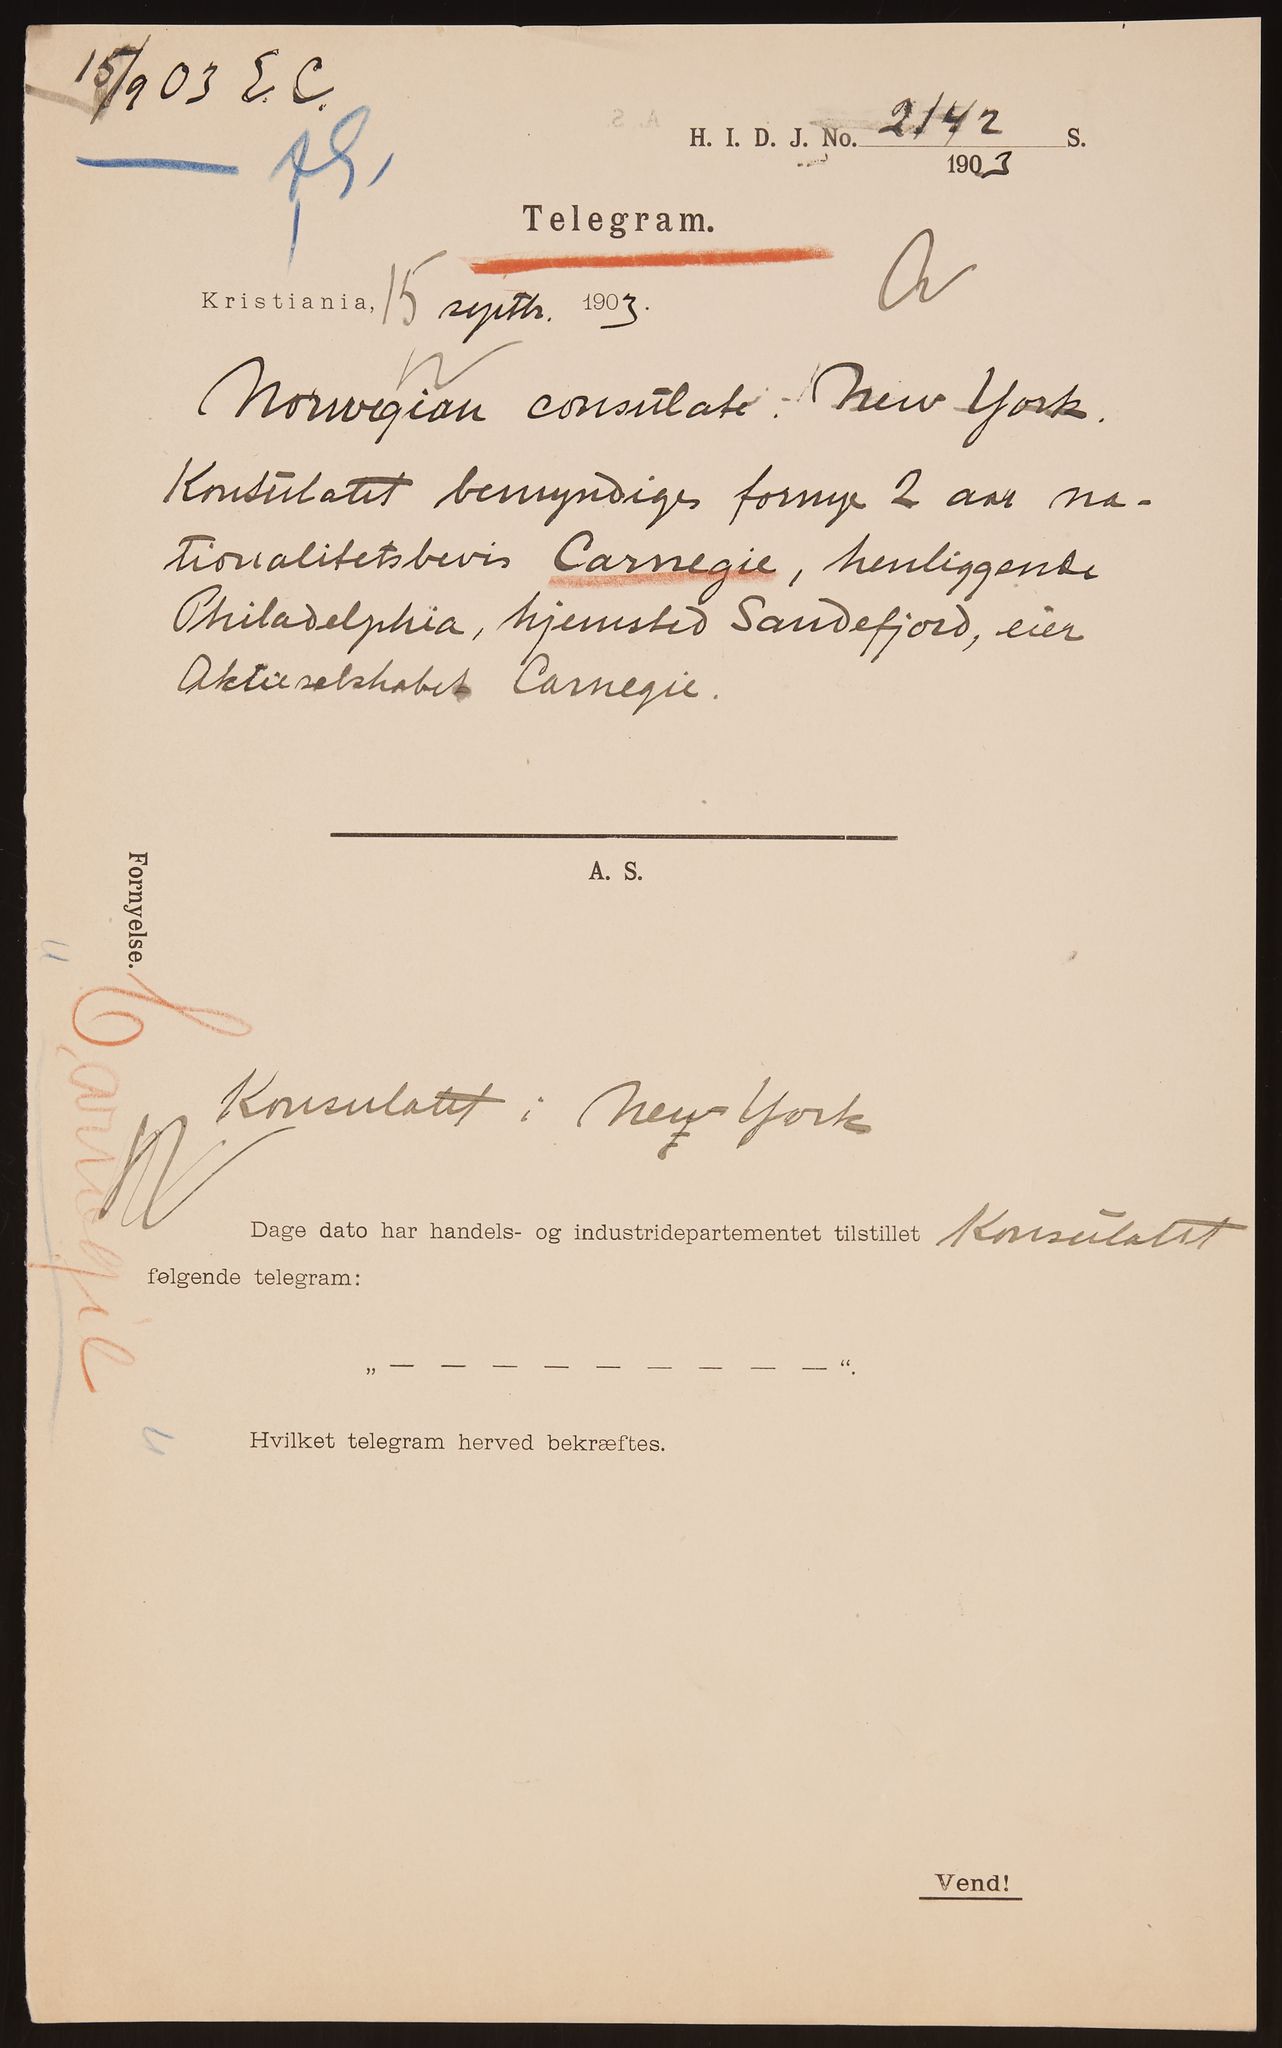 15/9 03 E. C.
H. I. D. J. No. 2142 S.
1903
Telegram.
Kristiania, 15 septbr. 1903.
Norwegian consulate. New York.
Konsulatet bemyndiges fornye 2 aar na-
tionalitetsbevis Carnegie, henliggende
Philadelphia, hjemsted Sandefjord, eier
Aktieselskabet Carnegie.
A. S.
Fornyelse.
Carnegie
Konsulatet i New York
Dage dato har handels- og industridepartementet tilstillet Konsulatet
følgende telegram:
„ — — — — — — — — — “.
Hvilket telegram herved bekræftes.
Vend!